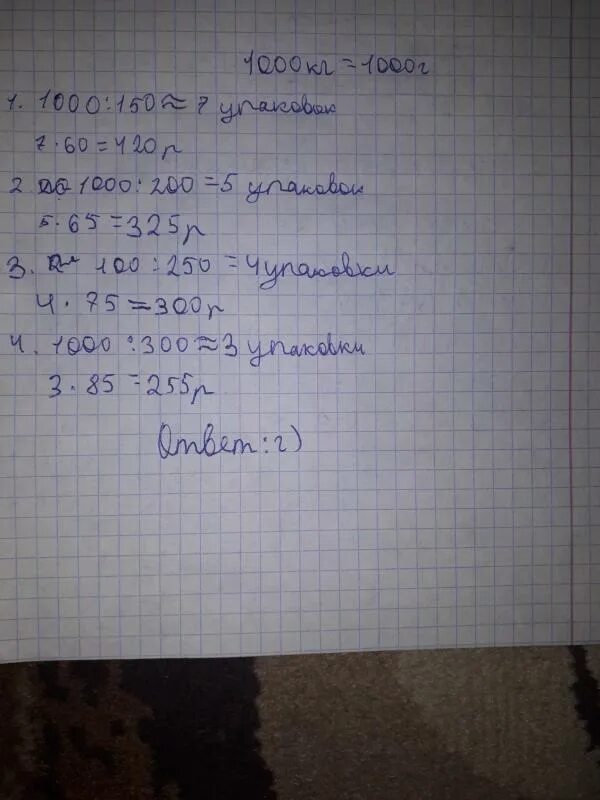 1000кг = 1000г
1. 1000 : 150 ≈ 7 упаковок
7 · 60 = 420р
2 1000 : 200 = 5 упаковок
5 · 65 = 325р
3. 100 : 250 = 4 упаковки
4 · 75 = 300р
4. 1000 : 300 ≈ 3 упаковки
3 · 85 = 255р
Ответ: г)